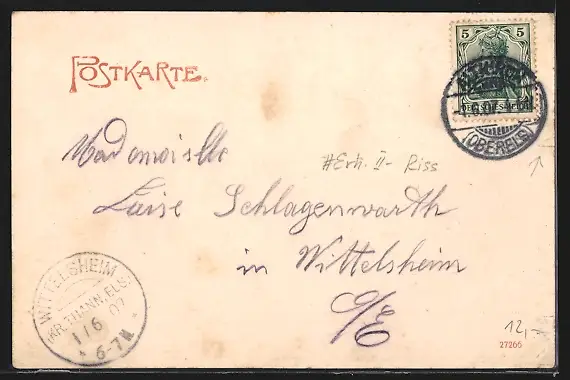 POSTKARTE.
5 5
DEUTSCHES REICH
(OBERELS)
Mademoiselle
#Erh. II- Riss
Luise Schlagenwarth
in Wittelsheim
O/E
WITTELSHEIM
(KR. THANN, ELS)
1/6 07
* 6-7 N. *
12,-
27266